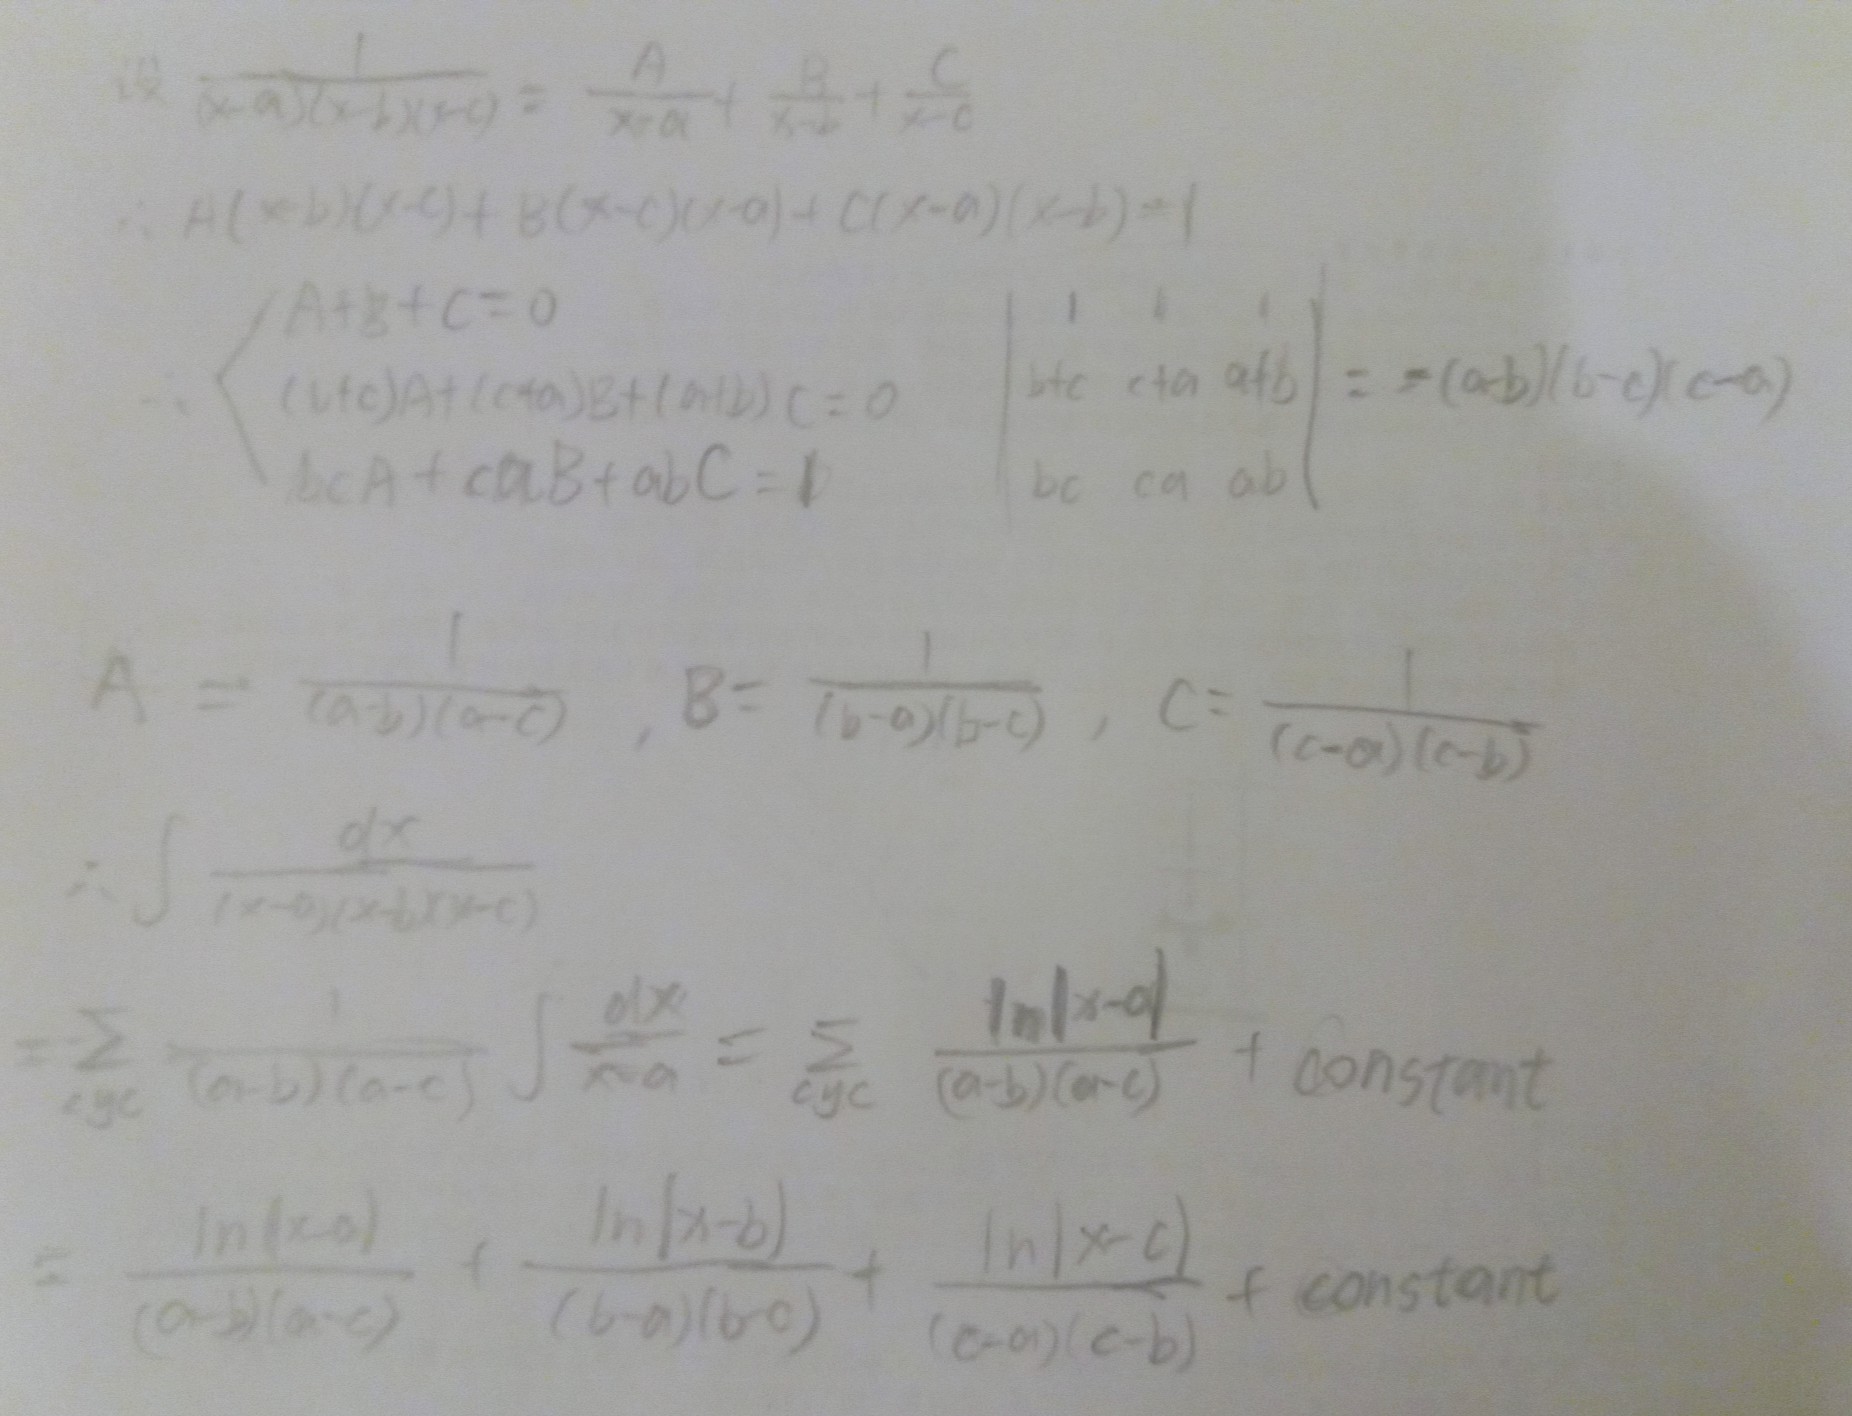 设 1/((x-a)(x-b)(x-c)) = A/(x-a) + B/(x-b) + C/(x-c)
∴ A(x-b)(x-c)+B(x-c)(x-a)+C(x-a)(x-b)=1
∴ { A+B+C=0
(b+c)A+(c+a)B+(a+b)C=0
bcA+caB+abC=1
| 1 1 1 |
| b+c c+a a+b | = -(a-b)(b-c)(c-a)
| bc ca ab |
A = 1/((a-b)(a-c)) , B= 1/((b-a)(b-c)) , C= 1/((c-a)(c-b))
∴ ∫ dx/((x-a)(x-b)(x-c))
= ∑cyc 1/((a-b)(a-c)) ∫ dx/(x-a) = ∑cyc ln|x-a|/((a-b)(a-c)) + constant
= ln|x-a|/((a-b)(a-c)) + ln|x-b|/((b-a)(b-c)) + ln|x-c|/((c-a)(c-b)) + constant